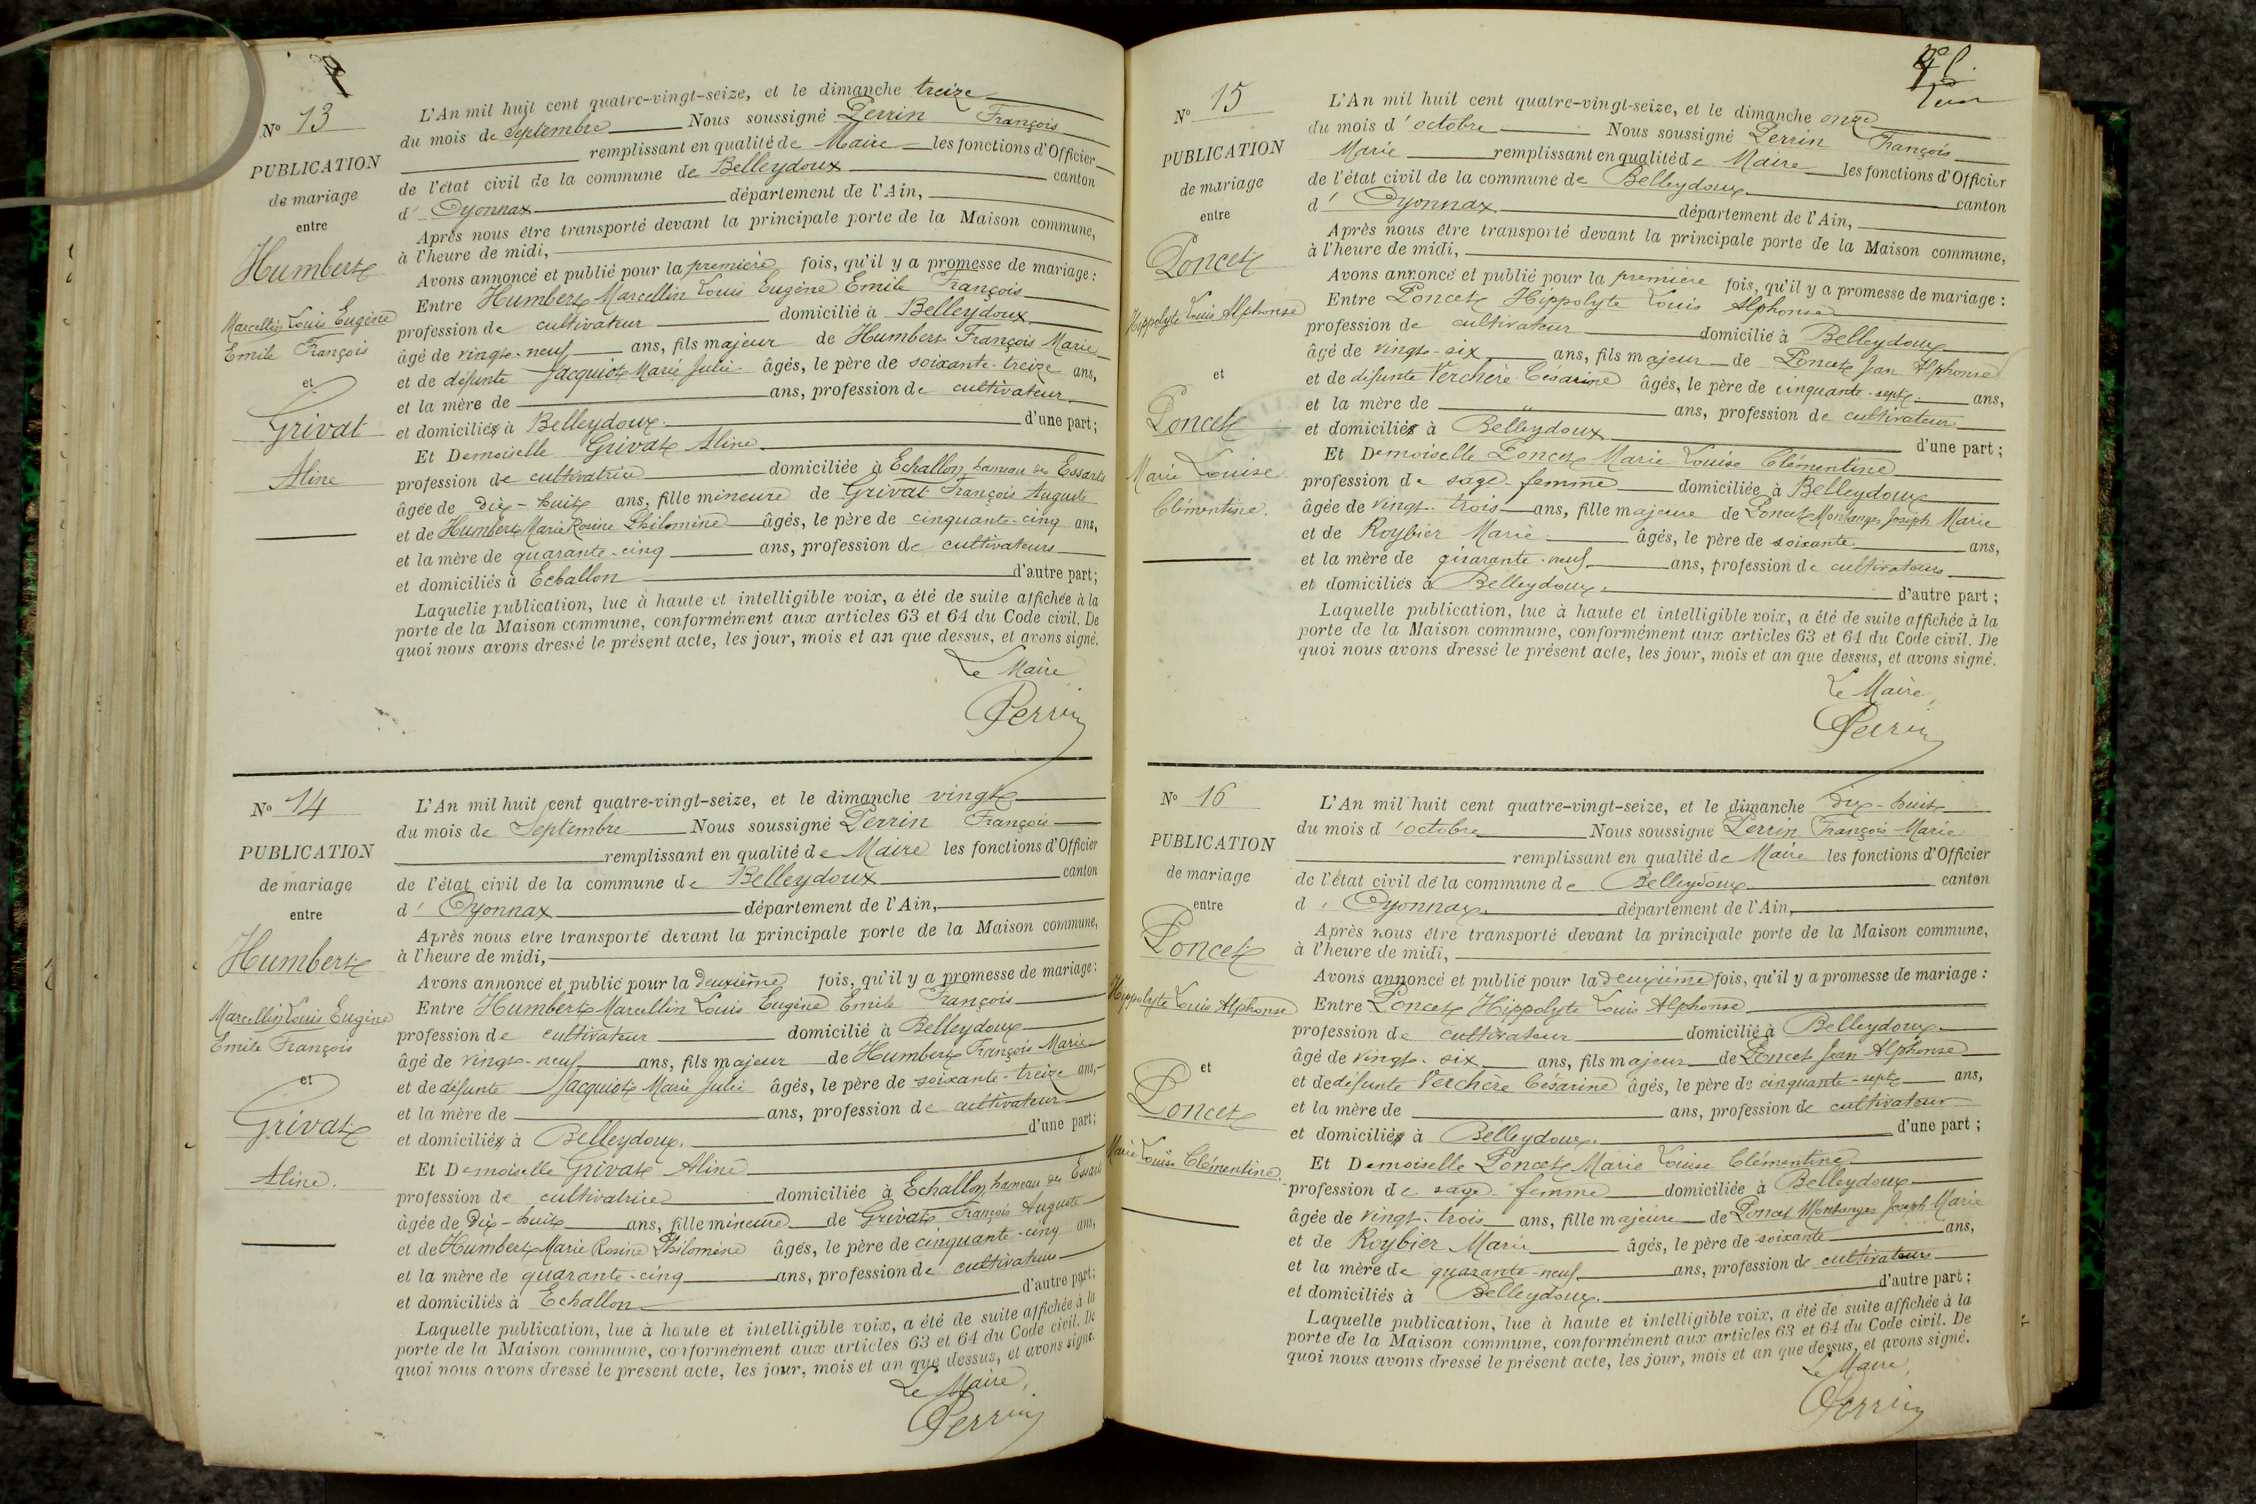 Nº 13
PUBLICATION
de mariage
entre
Humbert
Marcellin Louis Eugène
Emile François
et
Grivat
Aline
L'An mil huit cent quatre-vingt-seize, et le dimanche treize
du mois de Septembre Nous soussigné Perrin François
remplissant en qualité de Maire les fonctions d'Officier
de l'état civil de la commune de Belleydoux canton
d'Oyonnax département de l'Ain,
Après nous être transporté devant la principale porte de la Maison commune,
à l'heure de midi,
Avons annoncé et publié pour la première fois, qu'il y a promesse de mariage :
Entre Humbert Marcellin Louis Eugène Emile François
profession de cultivateur domicilié à Belleydoux
âgé de vingt-neuf ans, fils majeur de Humbert François Marie
et de défunte Jacquiot Marie Julie âgés, le père de soixante-treize ans,
et la mère de ans, profession de cultivateur
et domiciliés à Belleydoux d'une part;
Et Demoiselle Grivat Aline
profession de cultivatrice domiciliée à Echallon, hameau des Essarts
âgée de Dix-huit ans, fille mineure de Grivat François Auguste
et de Humbert Marie Rosine Philomène âgés, le père de cinquante-cinq ans,
et la mère de quarante-cinq ans, profession de cultivateurs
et domiciliés à Echallon d'autre part;
Laquelle publication, lue à haute et intelligible voix, a été de suite affichée à la
porte de la Maison commune, conformément aux articles 63 et 64 du Code civil. De
quoi nous avons dressé le présent acte, les jour, mois et an que dessus, et avons signé.
Le Maire
Perrin
Nº 14
PUBLICATION
de mariage
entre
Humbert
Marcellin Louis Eugène
Emile François
et
Grivat
Aline.
L'An mil huit cent quatre-vingt-seize, et le dimanche vingt
du mois de Septembre Nous soussigné Perrin François
remplissant en qualité de Maire les fonctions d'Officier
de l'état civil de la commune de Belleydoux canton
d'Oyonnax département de l'Ain,
Après nous être transporté devant la principale porte de la Maison commune,
à l'heure de midi,
Avons annoncé et publié pour la Deuxième fois, qu'il y a promesse de mariage :
Entre Humbert Marcellin Louis Eugène Emile François
profession de cultivateur domicilié à Belleydoux
âgé de vingt-neuf ans, fils majeur de Humbert François Marie
et de défunte Jacquiot Marie Julie âgés, le père de soixante-treize ans,
et la mère de ans, profession de cultivateur
et domiciliés à Belleydoux. d'une part;
Et Demoiselle Grivat Aline
profession de cultivatrice domiciliée à Echallon, hameau des Essarts
âgée de Dix-huit ans, fille mineure de Grivat François Auguste
et de Humbert Marie Rosine Philomène âgés, le père de cinquante-cinq ans,
et la mère de quarante-cinq ans, profession de cultivateurs
et domiciliés à Echallon d'autre part;
Laquelle publication, lue à haute et intelligible voix, a été de suite affichée à la
porte de la Maison commune, conformément aux articles 63 et 64 du Code civil. De
quoi nous avons dressé le présent acte, les jour, mois et an que dessus, et avons signé.
Le Maire,
Perrin
Nº 15
PUBLICATION
de mariage
entre
Poncet
Hippolyte Louis Alphonse
et
Poncet
Marie Louise
Clémentine.
L'An mil huit cent quatre-vingt-seize, et le dimanche onze
du mois d'octobre Nous soussigné Perrin François
Marie remplissant en qualité de Maire les fonctions d'Officier
de l'état civil de la commune de Belleydoux canton
d'Oyonnax département de l'Ain,
Après nous être transporté devant la principale porte de la Maison commune,
à l'heure de midi,
Avons annoncé et publié pour la première fois, qu'il y a promesse de mariage :
Entre Poncet Hippolyte Louis Alphonse
profession de cultivateur domicilié à Belleydoux
âgé de vingt-six ans, fils majeur de Poncet Jean Alphonse
et de défunte Verchère Césarine âgés, le père de cinquante-sept ans,
et la mère de " ans, profession de cultivateur
et domiciliés à Belleydoux d'une part ;
Et Demoiselle Poncet Marie Louise Clémentine
profession de sage-femme domiciliée à Belleydoux
âgée de vingt-trois ans, fille majeure de Poncet Montanges Joseph Marie
et de Roybier Marie âgés, le père de soixante ans,
et la mère de quarante-neuf ans, profession de cultivateurs
et domiciliés à Belleydoux. d'autre part ;
Laquelle publication, lue à haute et intelligible voix, a été de suite affichée à la
porte de la Maison commune, conformément aux articles 63 et 64 du Code civil. De
quoi nous avons dressé le présent acte, les jour, mois et an que dessus, et avons signé.
Le Maire,
Perrin
Nº 16
PUBLICATION
de mariage
entre
Poncet
Hippolyte Louis Alphonse
et
Poncet
Marie Louise Clémentine.
L'An mil huit cent quatre-vingt-seize, et le dimanche Dix-huit
du mois d'octobre Nous soussigné Perrin François Marie
remplissant en qualité de Maire les fonctions d'Officier
de l'état civil de la commune de Belleydoux canton
d'Oyonnax département de l'Ain,
Après nous être transporté devant la principale porte de la Maison commune,
à l'heure de midi,
Avons annoncé et publié pour la deuxième fois, qu'il y a promesse de mariage :
Entre Poncet Hippolyte Louis Alphonse
profession de cultivateur domicilié à Belleydoux
âgé de vingt-six ans, fils majeur de Poncet Jean Alphonse
et de défunte Verchère Césarine âgés, le père de cinquante-sept ans,
et la mère de ans, profession de cultivateur
et domiciliés à Belleydoux. d'une part ;
Et Demoiselle Poncet Marie Louise Clémentine
profession de sage-femme domiciliée à Belleydoux
âgée de vingt-trois ans, fille majeure de Poncet Montanges Joseph Marie
et de Roybier Marie âgés, le père de soixante ans,
et la mère de quarante-neuf ans, profession de cultivateurs
et domiciliés à Belleydoux. d'autre part ;
Laquelle publication, lue à haute et intelligible voix, a été de suite affichée à la
porte de la Maison commune, conformément aux articles 63 et 64 du Code civil. De
quoi nous avons dressé le présent acte, les jour, mois et an que dessus, et avons signé.
Le Maire,
Perrin